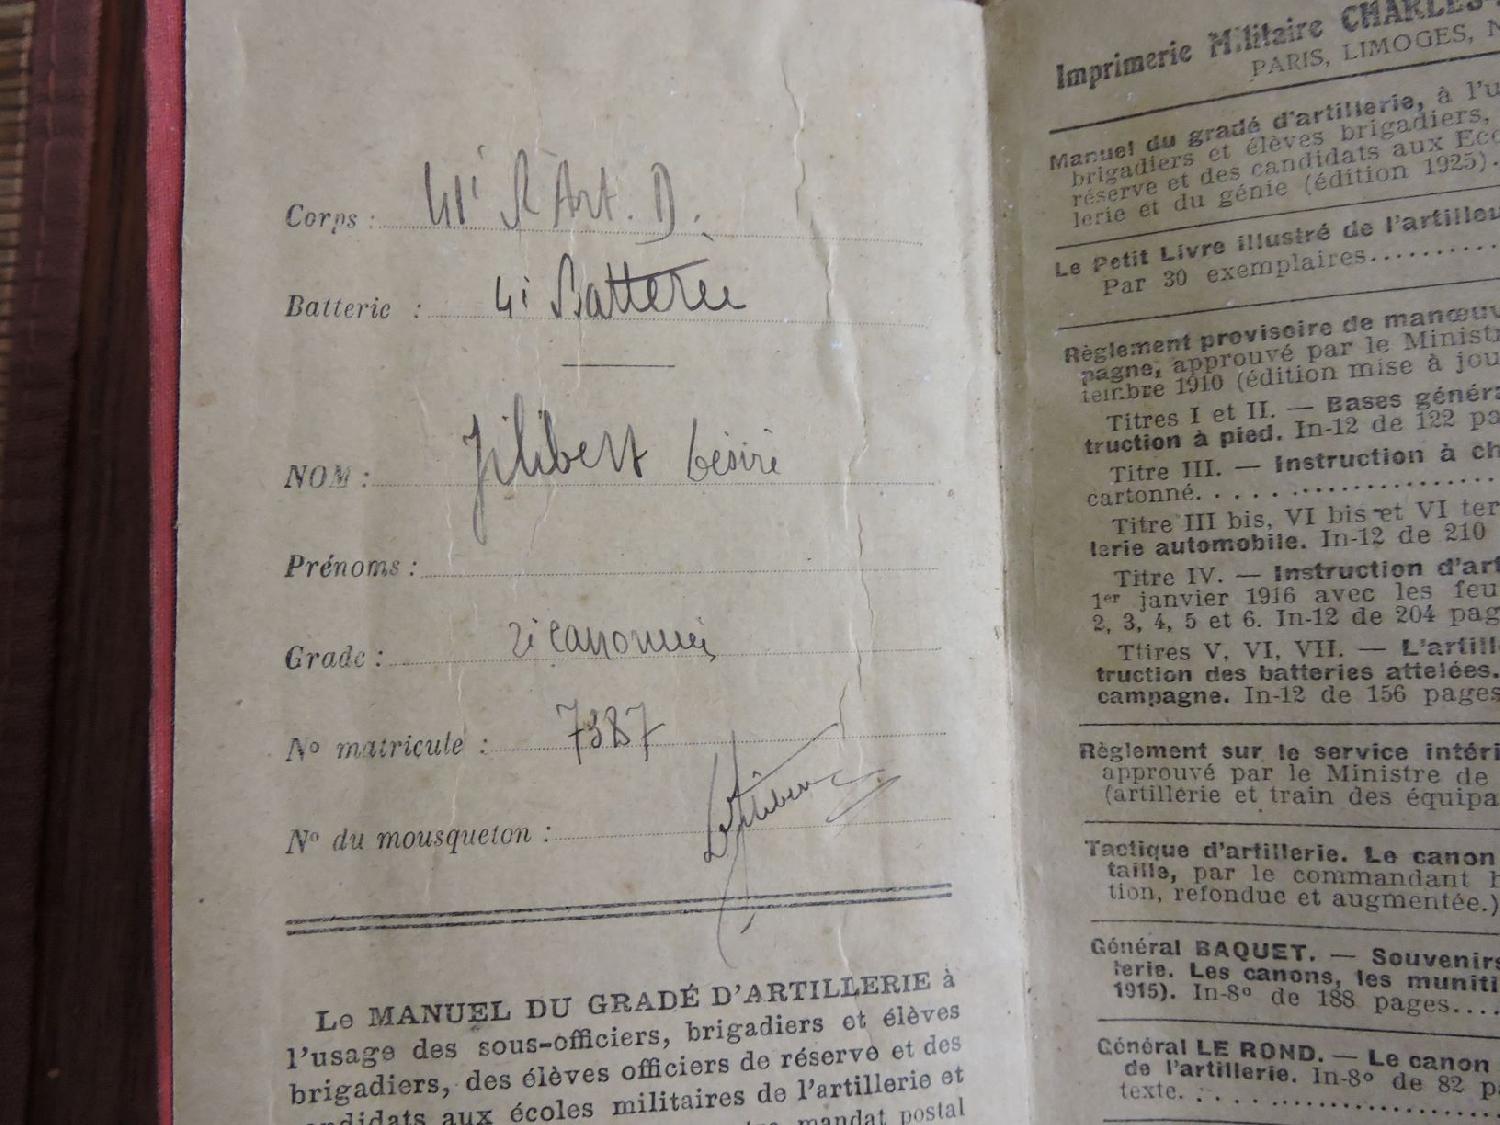 Corps : 41e R Art. D.
Batterie : 4e Batterie
NOM : Jilibert Désiré
Prénoms :
Grade : 2e canonnier
No matricule : 7387
No du mousqueton :
Le MANUEL DU GRADÉ D'ARTILLERIE à
l'usage des sous-officiers, brigadiers et élèves
brigadiers, des élèves officiers de réserve et des
candidats aux écoles militaires de l'artillerie et
mandat postal
Imprimerie Militaire CHARLES-
PARIS, LIMOGES, N
Manuel du gradé d'artillerie, à l'u
brigadiers et élèves brigadiers,
réserve et des candidats aux Eco
lerie et du génie (édition 1925).
Le Petit Livre illustré de l'artilleu
Par 30 exemplaires........
Règlement provisoire de manœuv
pagne, approuvé par le Minist
tembre 1910 (édition mise à jou
Titres I et II. — Bases généra
truction à pied. In-12 de 122 pa
Titre III. — Instruction à ch
cartonné. . . . . .
Titre III bis, VI bis et VI ter
lerie automobile. In-12 de 210
Titre IV. — Instruction d'art
1er janvier 1916 avec les feu
2, 3, 4, 5 et 6. In-12 de 204 pag
Ttires V, VI, VII. — L'artill
truction des batteries attelées.
campagne. In-12 de 156 pages
Règlement sur le service intéri
approuvé par le Ministre de
(artillerie et train des équipa
Tactique d'artillerie. Le canon
taille, par le commandant
tion, refondue et augmentée.)
Général BAQUET. — Souvenirs
terie. Les canons, les muniti
1915). In-8o de 188 pages....
Général LE ROND. — Le canon
de l'artillerie. In-8o de 82 p
texte. . . . . .